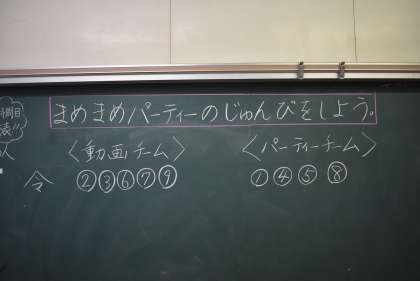 まめまめパーティーのじゅんびをしよう。
〈動画チーム〉
②③⑥⑦⑨
〈パーティーチーム〉
①④⑤⑧